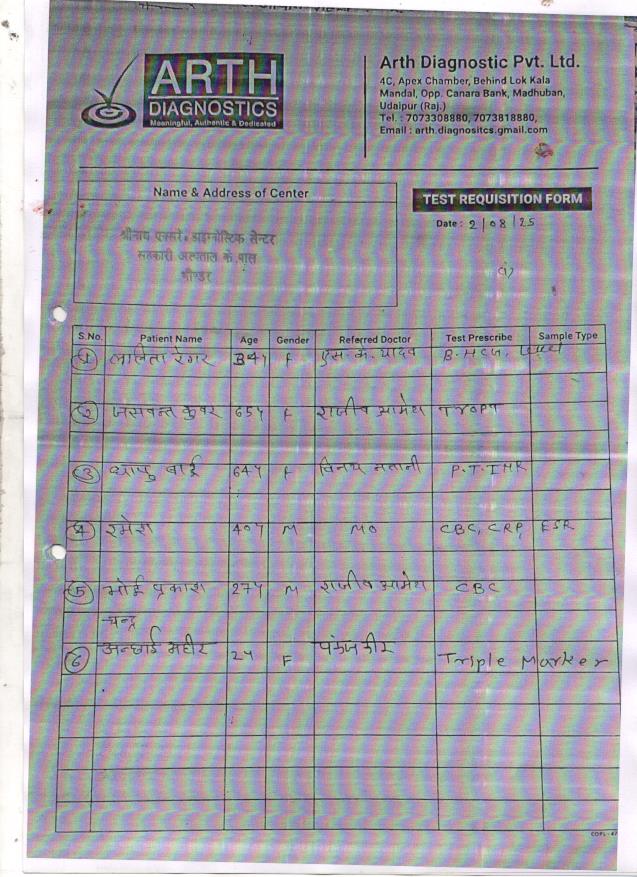 ARTH
DIAGNOSTICS
Meaningful, Authentic & Dedicated
Arth Diagnostic Pvt. Ltd.
4C, Apex Chamber, Behind Lok Kala
Mandal, Opp. Canara Bank, Madhuban,
Udaipur (Raj.)
Tel. : 7073308880, 7073818880,
Email : arth.diagnositcs.gmail.com
Name & Address of Center
श्रीनाथ एक्सरे, डाइग्नोस्टिक सेन्टर
सहकारी अस्पताल के पास
भीण्डर
TEST REQUISITION FORM
Date : 2/08/25
(1)
S.No. Patient Name Age Gender Referred Doctor Test Prescribe Sample Type
1 ललिता रेगर 34y F एस.के. यादव B.HCG,
2 जसवन्त कुवर 65y F राजीव आमेथ TROPT
3 बाई 64y F विनय P.T.INR
4 रमेश 40y M MO CBC, CRP, ESR
5 प्रकाश 27y M राजीव आमेथ CBC
चन्द्र
6 24 F पंकज कीर Triple Marker
COPL-47